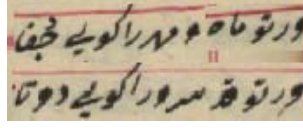 ور تو ماه و مهر را گویی بخفا
ور تو قد سرو را گویی دوتا